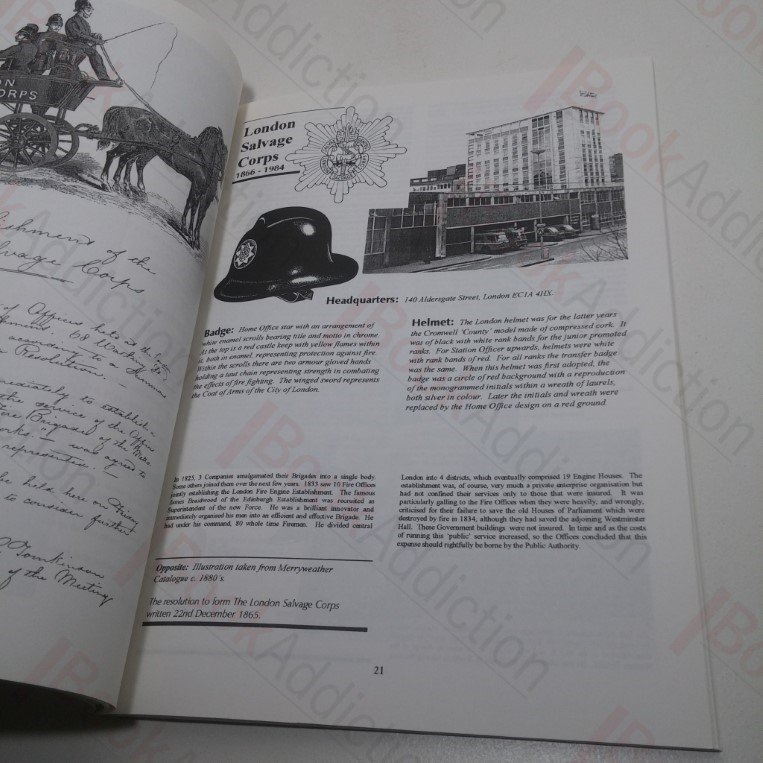 ON
CORPS
London
Salvage
Corps
1866 - 1984
Headquarters: 140 Aldersgate Street, London EC1A 4HX.
Badge: Home Office star with an arrangement of
white enamel scrolls bearing title and motto in chrome.
At the top is a red castle keep with yellow flames within
it, both in enamel, representing protection against fire.
Within the scrolls there are two armour gloved hands
holding a taut chain representing strength in combating
the effects of fire fighting. The winged sword represents
the Coat of Arms of the City of London.
Helmet: The London helmet was for the latter years
the Cromwell 'County' model made of compressed cork. It
was of black with white rank bands for the junior promoted
ranks. For Station Officer upwards, helmets were white
with rank bands of red. For all ranks the transfer badge
was the same. When this helmet was first adopted, the
badge was a circle of red background with a reproduction
of the monogrammed initials within a wreath of laurels,
both silver in colour. Later the initials and wreath were
replaced by the Home Office design on a red ground.
In 1825, 3 Companies amalgamated their Brigades into a single body.
Some others joined them over the next few years. 1833 saw 10 Fire Offices
jointly establishing the London Fire Engine Establishment. The famous
James Braidwood of the Edinburgh Establishment was recruited as
Superintendent of the new Force. He was a brilliant innovator and
immediately organised his men into an efficient and effective Brigade. He
had under his command, 80 whole time Firemen. He divided central
London into 4 districts, which eventually comprised 19 Engine Houses. The
establishment was, of course, very much a private enterprise organisation but
had not confined their services only to those that were insured. It was
particularly galling to the Fire Offices when they were heavily, and wrongly,
criticised for their failure to save the old Houses of Parliament which were
destroyed by fire in 1834, although they had saved the adjoining Westminster
Hall. These Government buildings were not insured. In time and as the costs
of running this 'public' service increased, so the Offices concluded that this
expense should rightfully be borne by the Public Authority.
Opposite: Illustration taken from Merryweather
Catalogue c. 1880's.
The resolution to form The London Salvage Corps
written 22nd December 1865.
21
of the
Salvage Corps
Offices held at the
Resolution
to establish a
the service of the Offices
Fire Brigade of the
agreed to
be held here on Friday
to consider further
Tomkinson
of the Meeting
Book Addiction